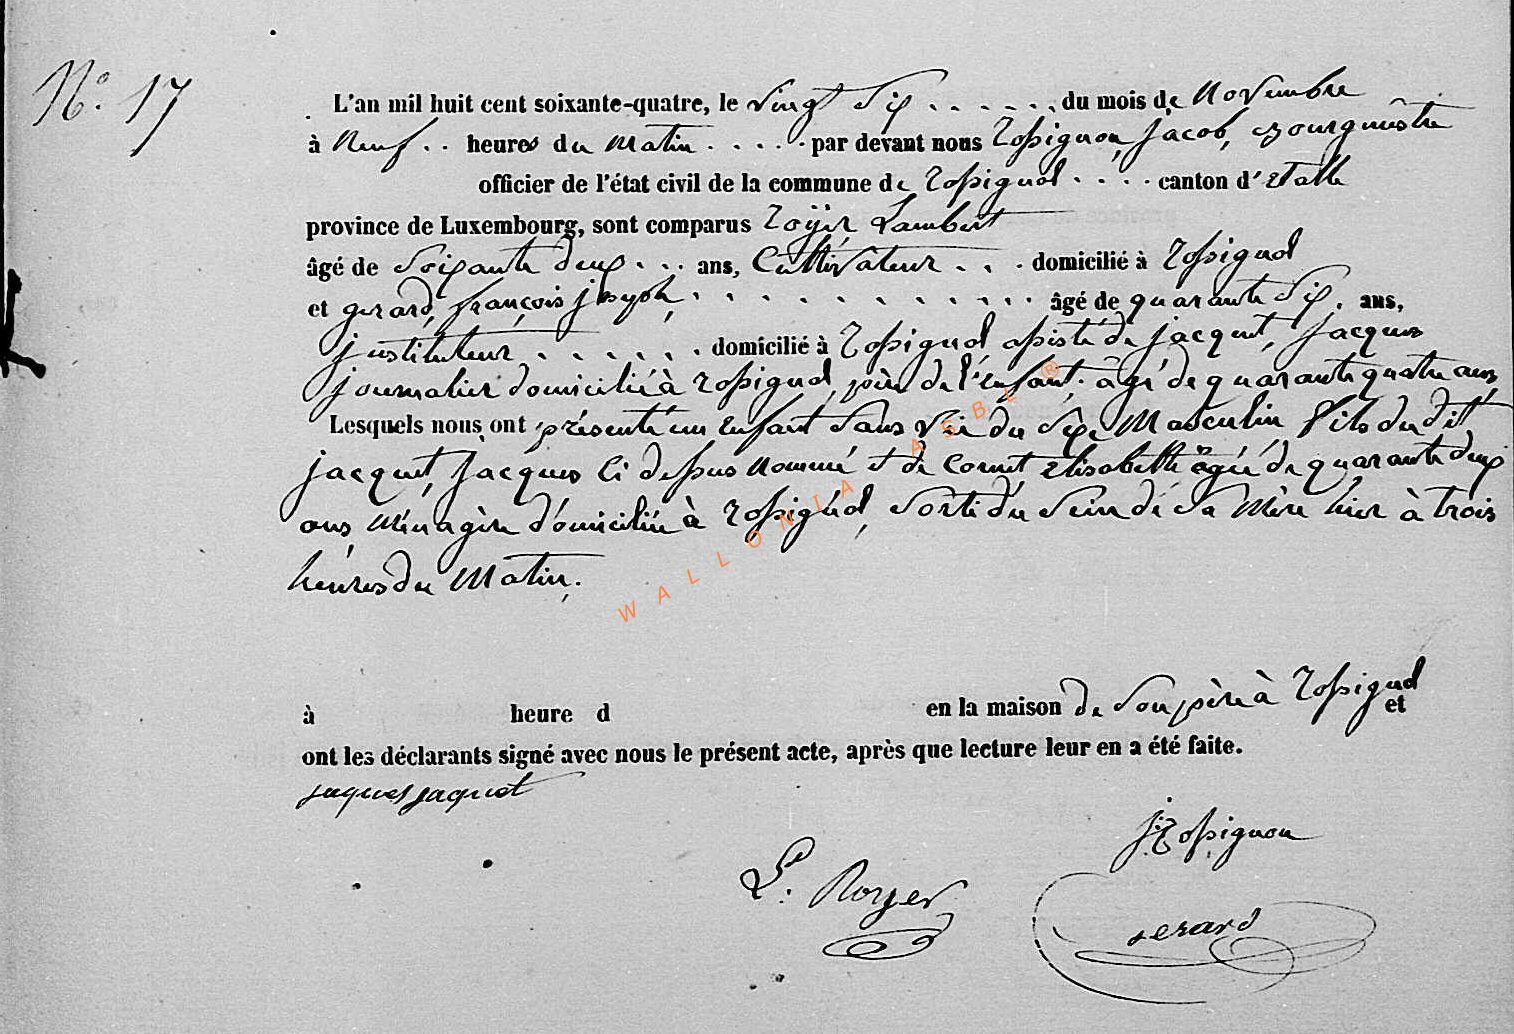 N°. 17
L'an mil huit cent soixante-quatre, le vingt Six . . . . . . du mois de Novembre
à Neuf . . heures du Matin . . . . . par devant nous Rossignon, Jacob, Bourgmestre
officier de l'état civil de la commune de Rossignol . . . . canton d'Etalle
province de Luxembourg, sont comparus Royer Lambert
âgé de Soixante deux . . . ans, Cultivateur . . . domicilié à Rossignol
et gerard, françois joseph, . . . . . . . . . . . . . âgé de quarante Six. ans,
instituteur . . . . . . domicilié à Rossignol assisté de jacquet, Jacques
journalier domicilié à Rossignol, père de l'enfant, âgé de quarante quatre ans,
Lesquels nous ont présenté un Enfant Sans Vie du Sexe Masculin fils du dit
jacquet, Jacques Ci dessus Nommé et de Cornet Elisabeth âgée de quarante deux
ans Ménagère domiciliée à Rossignol, Sorti du Sein de Sa Mère hier à trois
heures du Matin.
à heure d en la maison de Son père à Rossignol
et
ont les déclarants signé avec nous le présent acte, après que lecture leur en a été faite.
jaques jaquet
J. Rossignon
L. Royer
gerard
WALLONIA ASBL ®